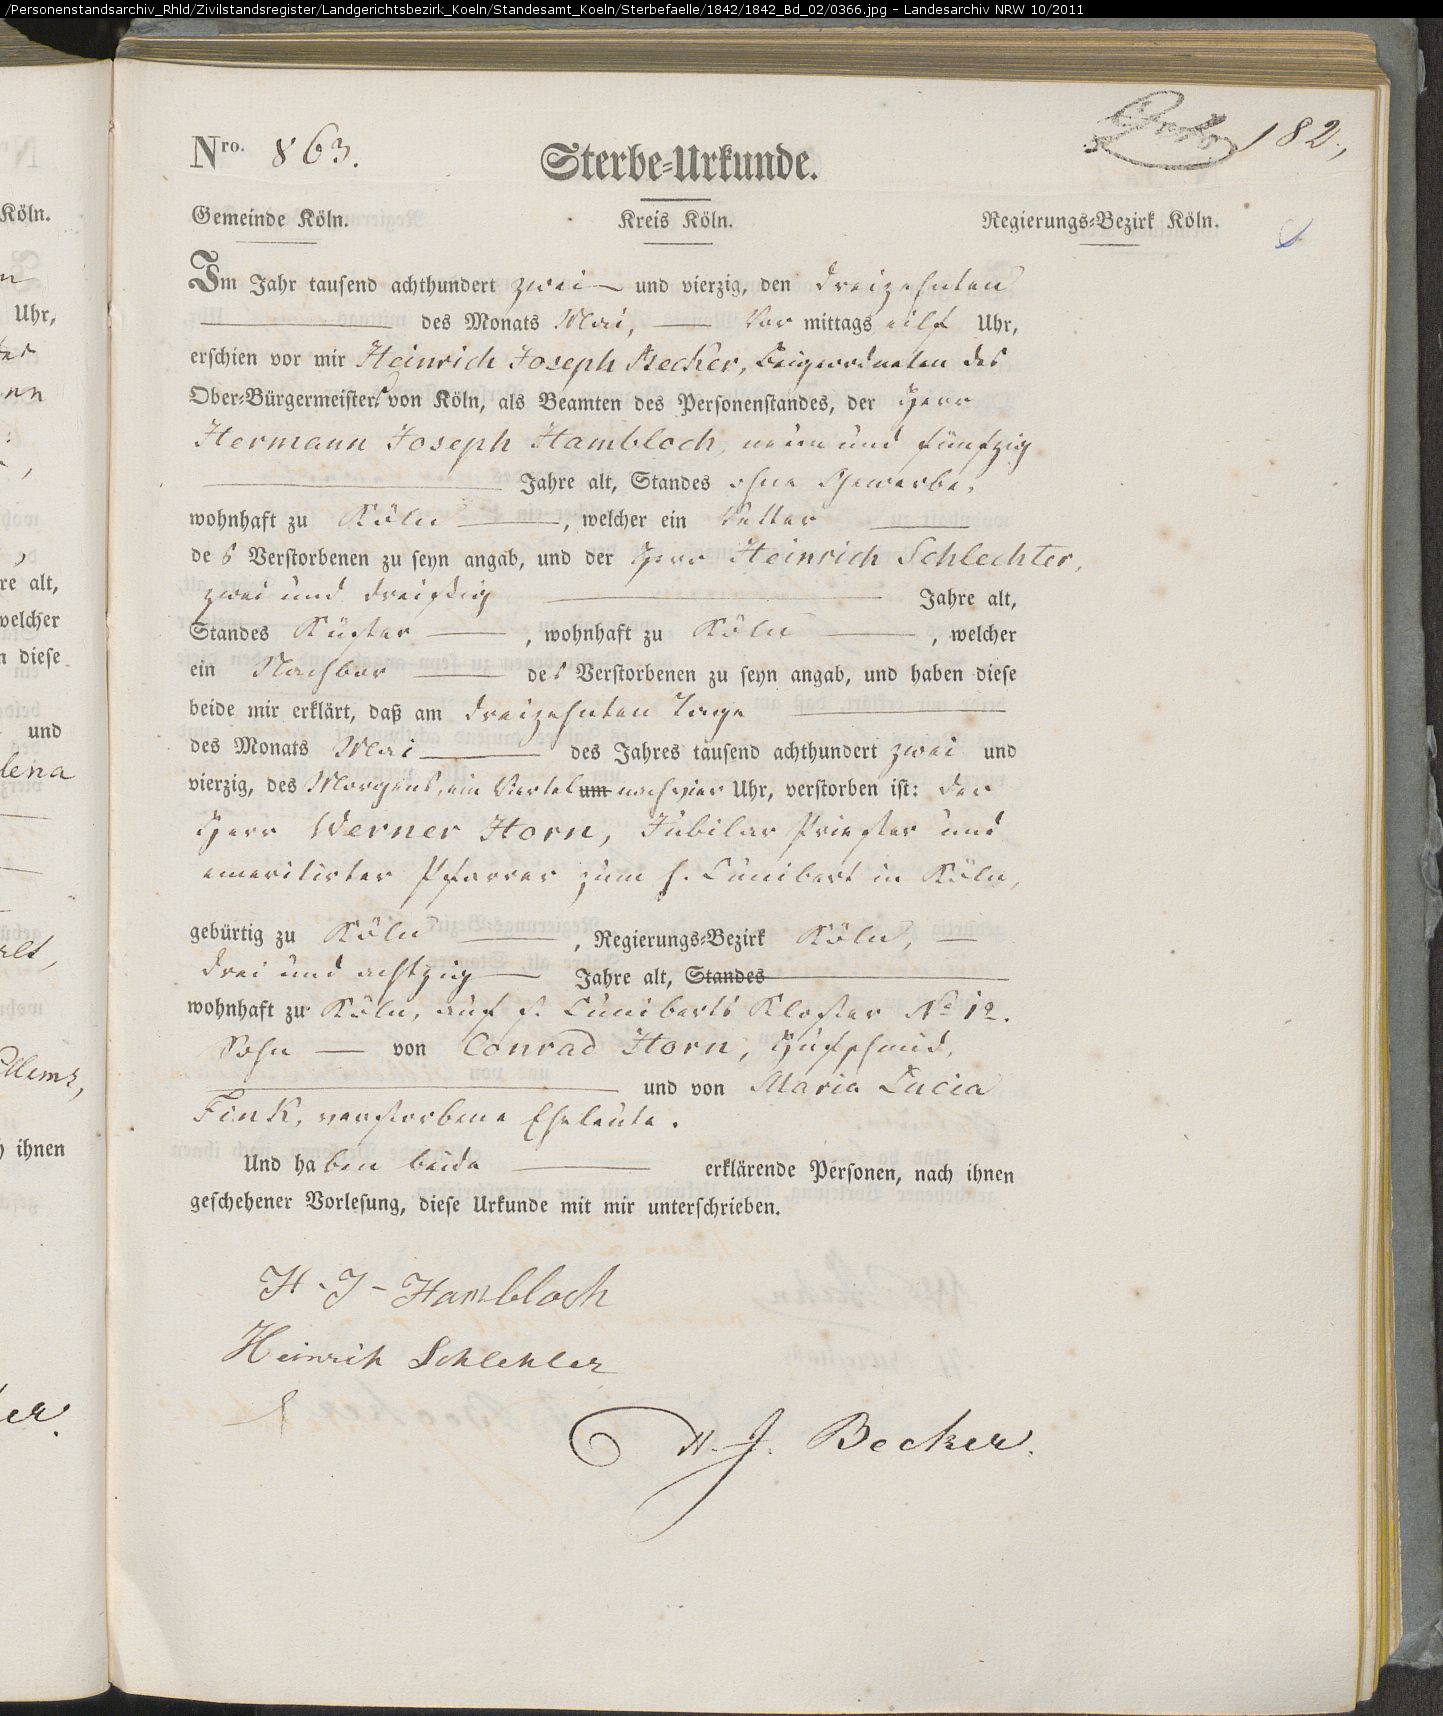 /Personenstandsarchiv_Rhld/Zivilstandsregister/Landgerichtsbezirk_Koeln/Standesamt_Koeln/Sterbefaelle/1842/1842_Bd_02/0366.jpg - Landesarchiv NRW 10/2011
182,
Nro. 863. Sterbe-Urkunde.
Gemeinde Köln. Kreis Köln. Regierungs-Bezirk Köln.
Im Jahr tausend achthundert zwei und vierzig, den dreizehnten
des Monats Mai, Vor mittags eilf Uhr,
erschien vor mir Heinrich Joseph Becker, Beigeordneten des
Ober-Bürgermeisters von Köln, als Beamten des Personenstandes, der Herr
Hermann Joseph Hambloch, neun und fünfzig
Jahre alt, Standes ohne Gewerbe,
wohnhaft zu Köln, welcher ein Vetter
des Verstorbenen zu seyn angab, und der Herr Heinrich Schlechter,
zwei und dreißig Jahre alt,
Standes Küster, wohnhaft zu Köln, welcher
ein Nachbar des Verstorbenen zu seyn angab, und haben diese
beide mir erklärt, daß am dreizehnten Tage
des Monats Mai des Jahres tausend achthundert zwei und
vierzig, des Morgens, ein Viertel um nach vier Uhr, verstorben ist: der
Herr Werner Horn, Jubilar Priester und
emeritirter Pfarrer zum h. Cunibert in Köln,
gebürtig zu Köln, Regierungs-Bezirk Köln,
drei und achtzig Jahre alt, Standes
wohnhaft zu Köln, auf St. Cuniberts Kloster No 12.
Sohn von Conrad Horn, Hufschmied,
und von Maria Lucia
Fink, verstorbene Eheleute.
Und haben beide erklärende Personen, nach ihnen
geschehener Vorlesung, diese Urkunde mit mir unterschrieben.
H-J-Hambloch
Heinrich Schlechter
H. J. Becker.
Köln.
Uhr,
re alt,
welcher
n diese
und
lena
ihnen